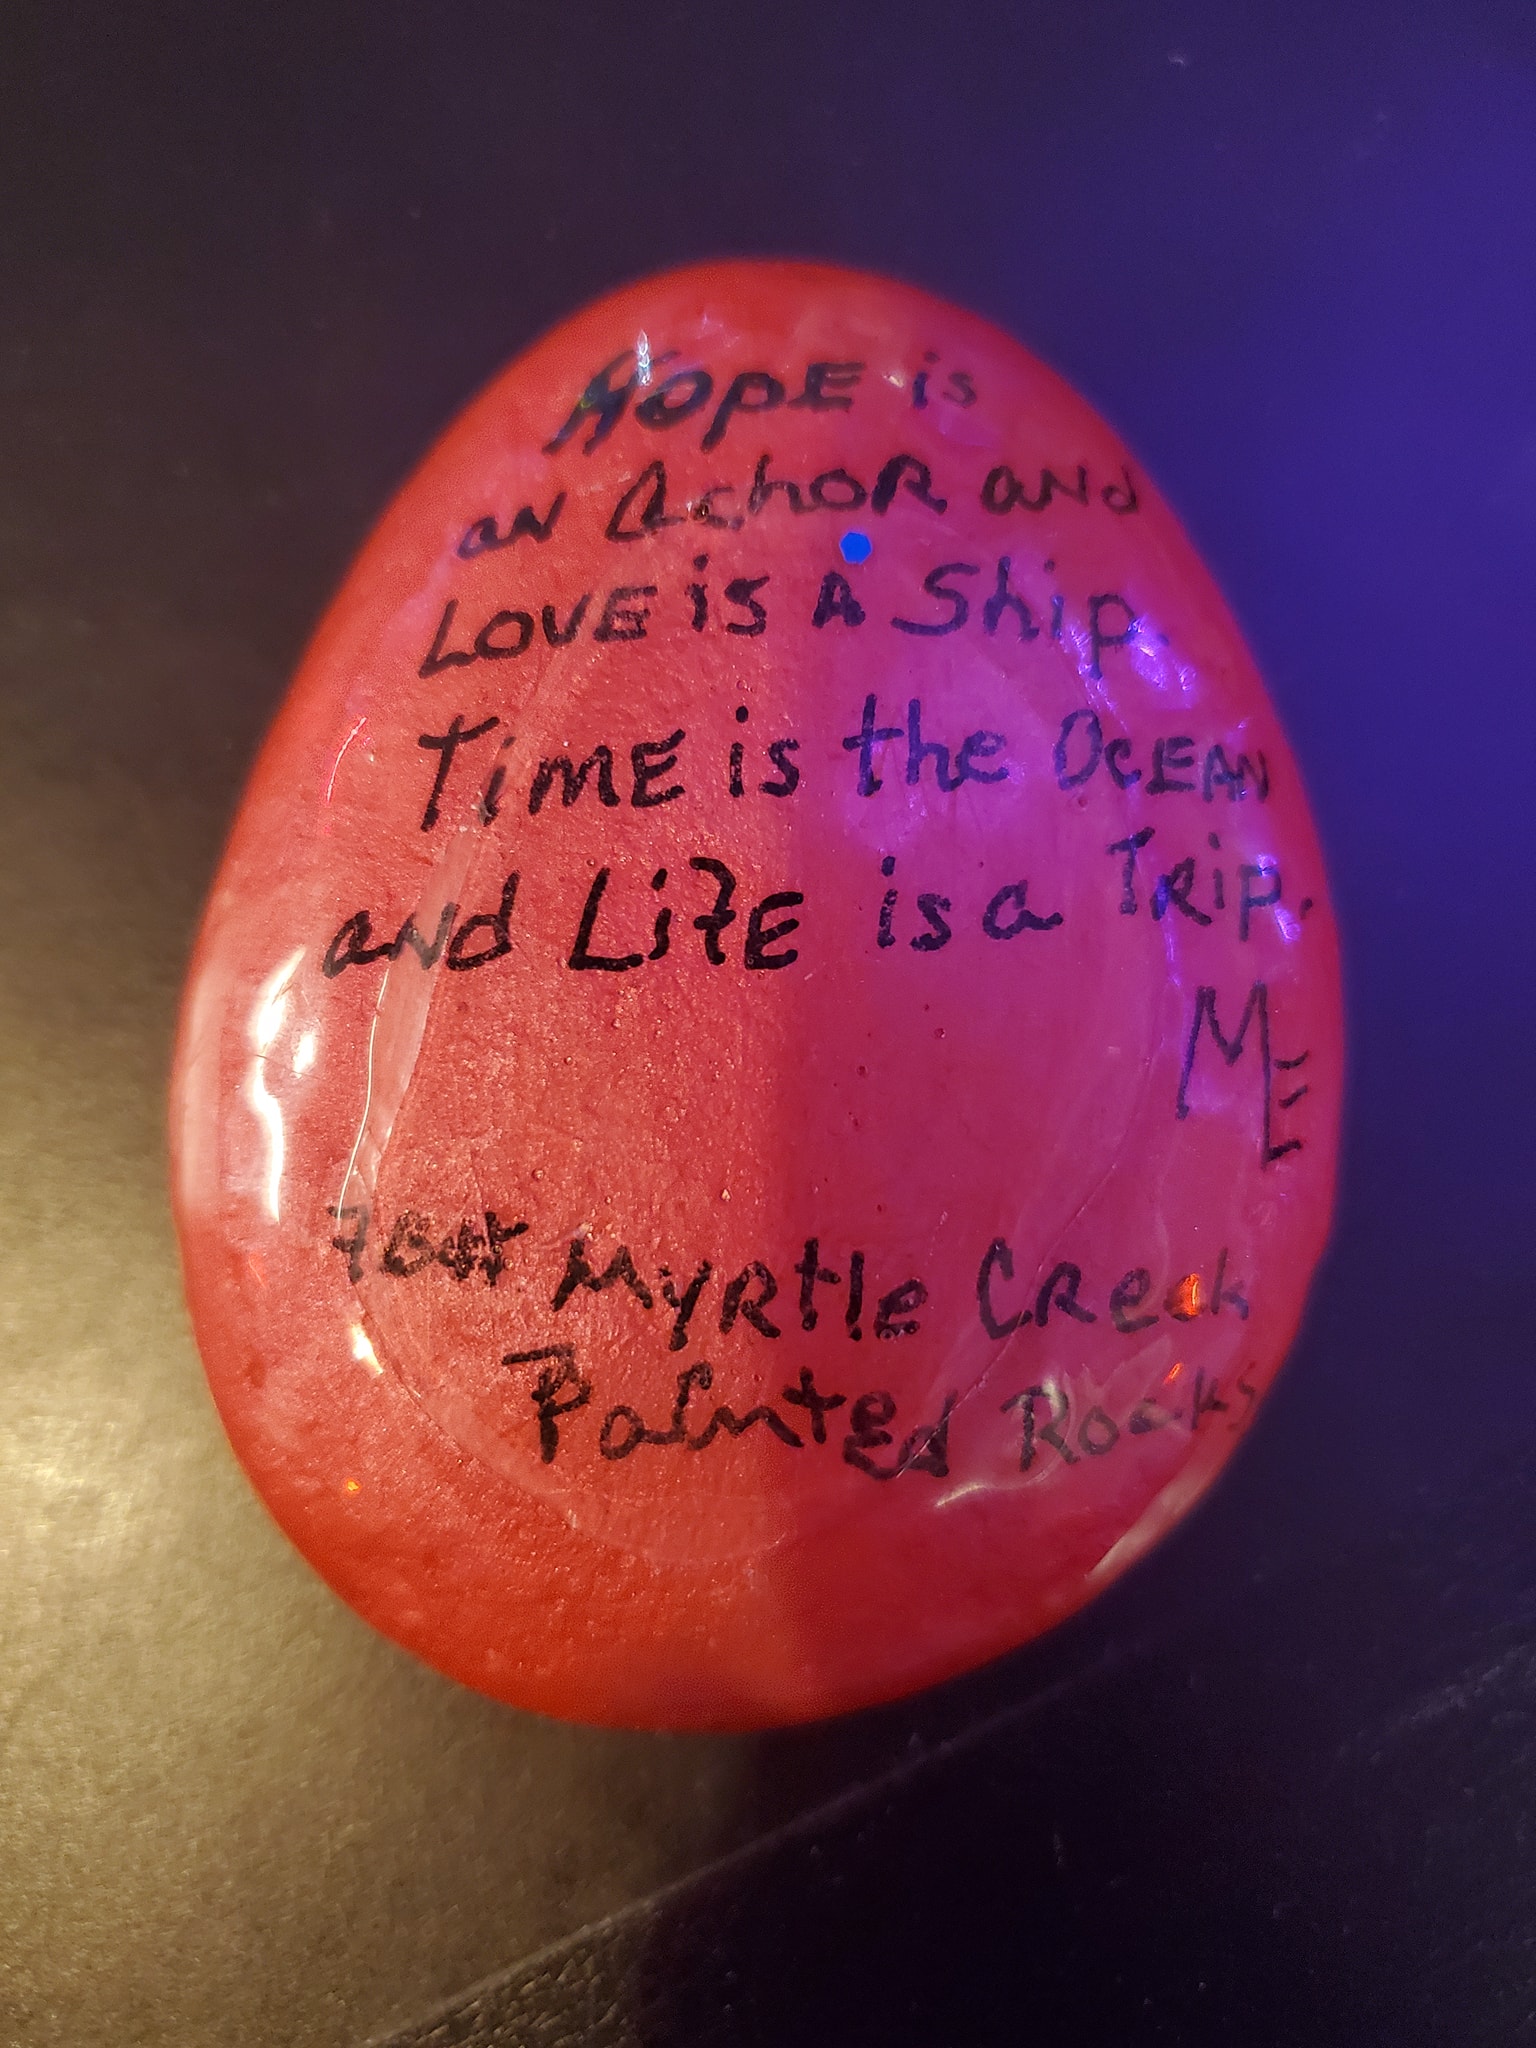 Hope is
an Achor and
Love is A Ship.
Time is the Ocean
and Life is a Trip.
ME
Myrtle Creek
Painted Rocks